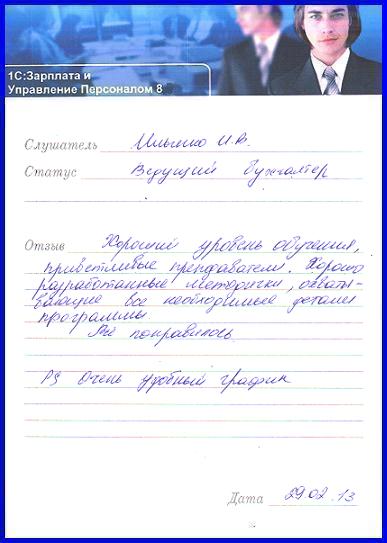 1С:Зарплата и
Управление Персоналом 8
Слушатель Ильченко И.В.
Статус Ведущий бухгалтер
Отзыв Хороший уровень обучения,
приветливые преподаватели. Хорошо
разработанные методички, охваты-
вающие все необходимые детали
программы.
Всё понравилось.
PS Очень удобный график
Дата 29.02.13